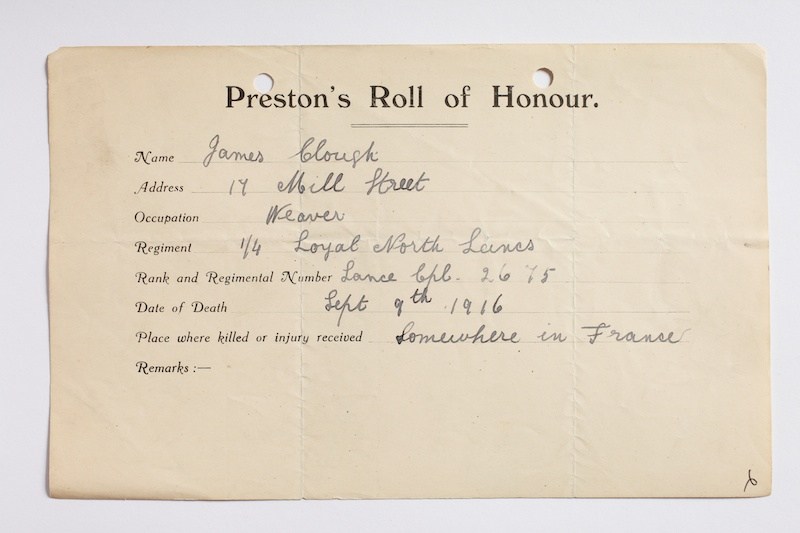 Preston's Roll of Honour.
Name James Clough
Address 17 Mill Street
Occupation Weaver
Regiment 1/4 Loyal North Lancs
Rank and Regimental Number Lance Cpl. 2675
Date of Death Sept 9th 1916
Place where killed or injury received Somewhere in France
Remarks :—